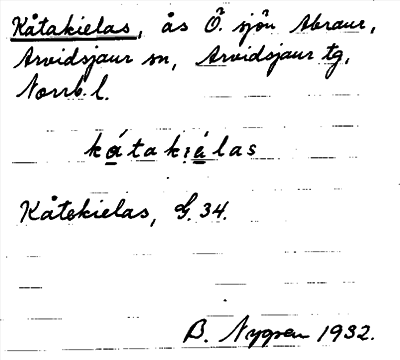 Kåtakielas, ås Ö. sjön Abraur,
Arvidsjaur sn, Arvidsjaur tg,
Norrb. l.
kátakiálas
Kåtekielas, G. 34.
B. Nygren 1932.